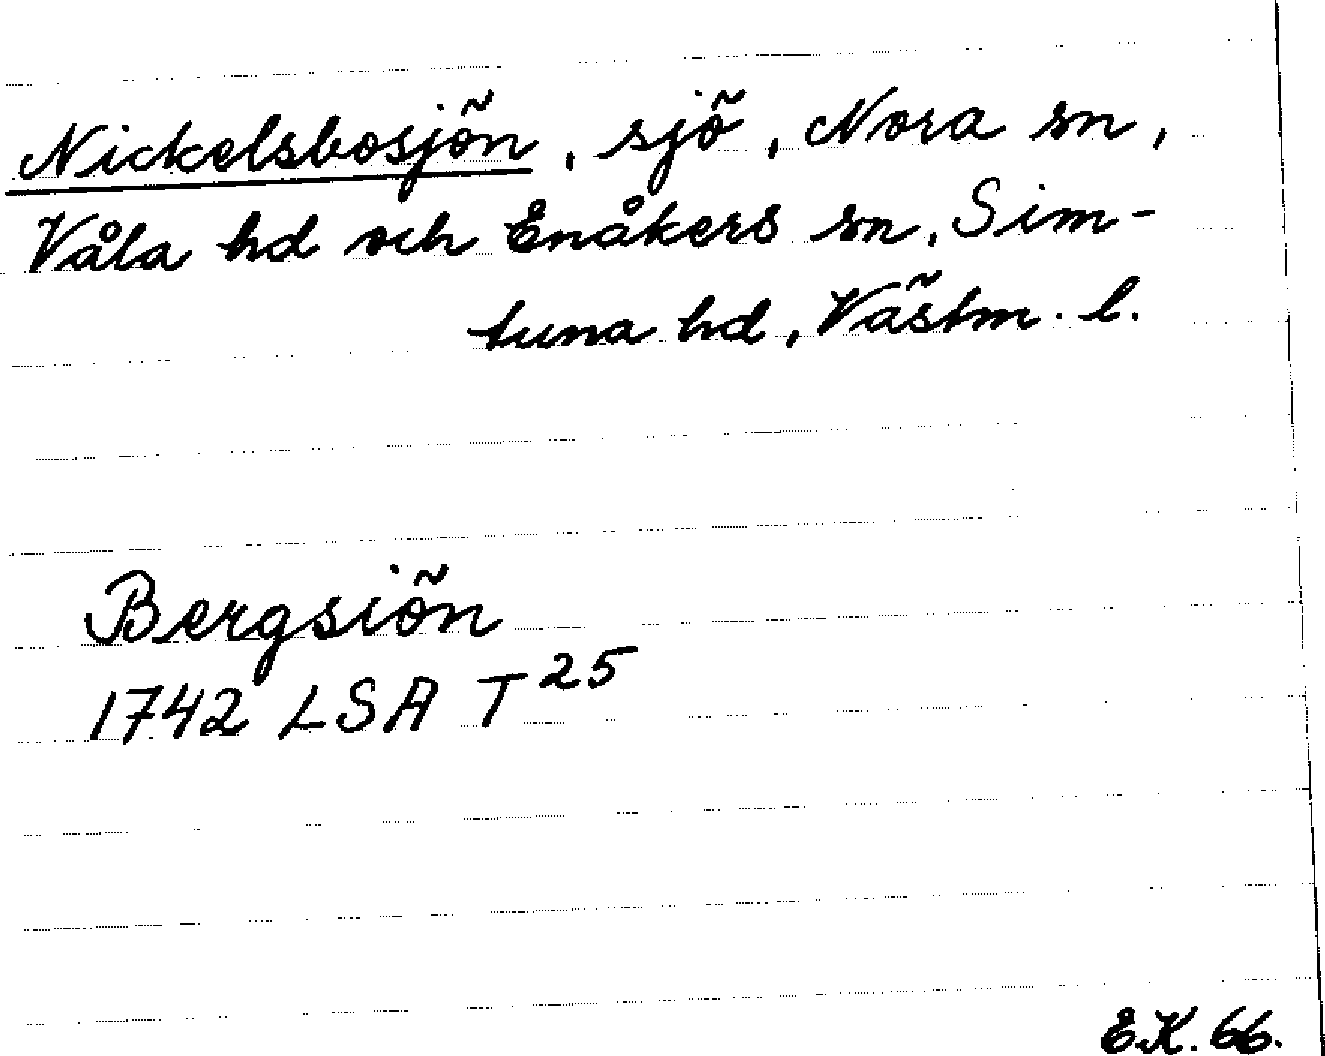 Nickelsbosjön, sjö, Nora sn,
Våla hd och Enåkers sn, Sim-
tuna hd, Västm. l.
Bergsiön
1742 LSA T 25
E.K. 66.